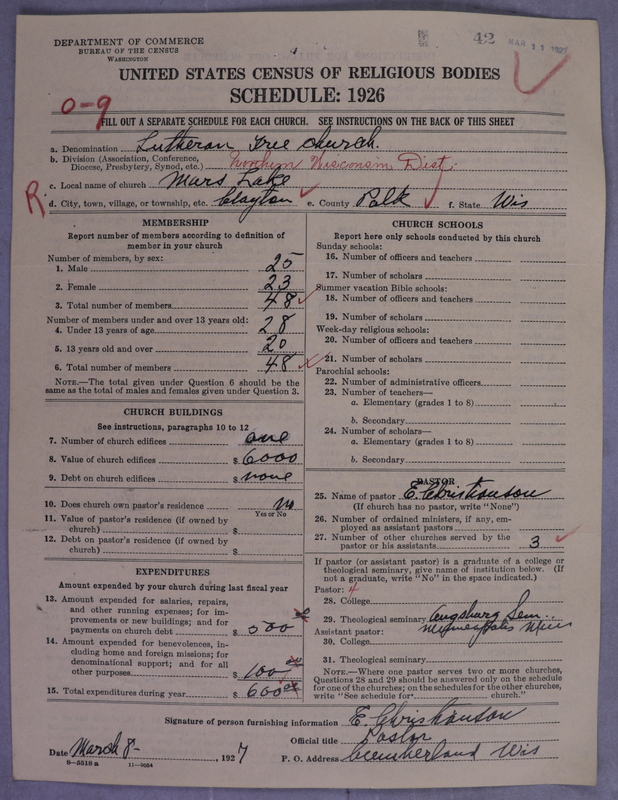 DEPARTMENT OF COMMERCE
BUREAU OF THE CENSUS
WASHINGTON
42
MAR 11 1927
UNITED STATES CENSUS OF RELIGIOUS BODIES
SCHEDULE: 1926
0-9
FILL OUT A SEPARATE SCHEDULE FOR EACH CHURCH. SEE INSTRUCTIONS ON THE BACK OF THIS SHEET
a. Denomination Lutheran Free Church.
b. Division (Association, Conference, Diocese, Presbytery, Synod, etc.) Northern Wisconsin Dist.
c. Local name of church Mars Lake
R
d. City, town, village, or township, etc. Clayton e. County Polk f. State Wis
MEMBERSHIP
Report number of members according to definition of
member in your church
Number of members, by sex:
1. Male 25
2. Female 23
3. Total number of members 48
Number of members under and over 13 years old:
4. Under 13 years of age 28
5. 13 years old and over 20
6. Total number of members 48
NOTE.—The total given under Question 6 should be the
same as the total of males and females given under Question 3.
CHURCH BUILDINGS
See instructions, paragraphs 10 to 12
7. Number of church edifices one
8. Value of church edifices $ 6000
9. Debt on church edifices $ none
10. Does church own pastor's residence no
Yes or No
11. Value of pastor's residence (if owned by
church) $
12. Debt on pastor's residence (if owned by
church) $
EXPENDITURES
Amount expended by church during last fiscal year
13. Amount expended for salaries, repairs,
and other running expenses; for im-
provements or new buildings; and for
payments on church debt $ 500 00
14. Amount expended for benevolences, in-
cluding home and foreign missions; for
denominational support; and for all
other purposes $ 100 00
15. Total expenditures during year $ 600 00
CHURCH SCHOOLS
Report here only schools conducted by this church
Sunday schools:
16. Number of officers and teachers
17. Number of scholars
Summer vacation Bible schools:
18. Number of officers and teachers
19. Number of scholars
Week-day religious schools:
20. Number of officers and teachers
21. Number of scholars
Parochial schools:
22. Number of administrative officers
23. Number of teachers—
a. Elementary (grades 1 to 8)
b. Secondary
24. Number of scholars—
a. Elementary (grades 1 to 8)
b. Secondary
PASTOR
25. Name of pastor E. Christianson
(If church has no pastor, write "None")
26. Number of ordained ministers, if any, em-
ployed as assistant pastors
27. Number of other churches served by the
pastor or his assistants 3
If pastor (or assistant pastor) is a graduate of a college or
theological seminary, give name of institution below. (If
not a graduate, write "No" in the space indicated.)
Pastor: 4
28. College
29. Theological seminary Augsburg Sem.
Minneapolis Minn
Assistant pastor:
30. College
31. Theological seminary
NOTE.—Where one pastor serves two or more churches,
Questions 28 and 29 should be answered only on the schedule
for one of the churches; on the schedules for the other churches,
write "See schedule for church."
Signature of person furnishing information E. Christianson
Official title Pastor
Date March 8-, 1927
P. O. Address Cumberland Wis
8-5518 a 11-9054